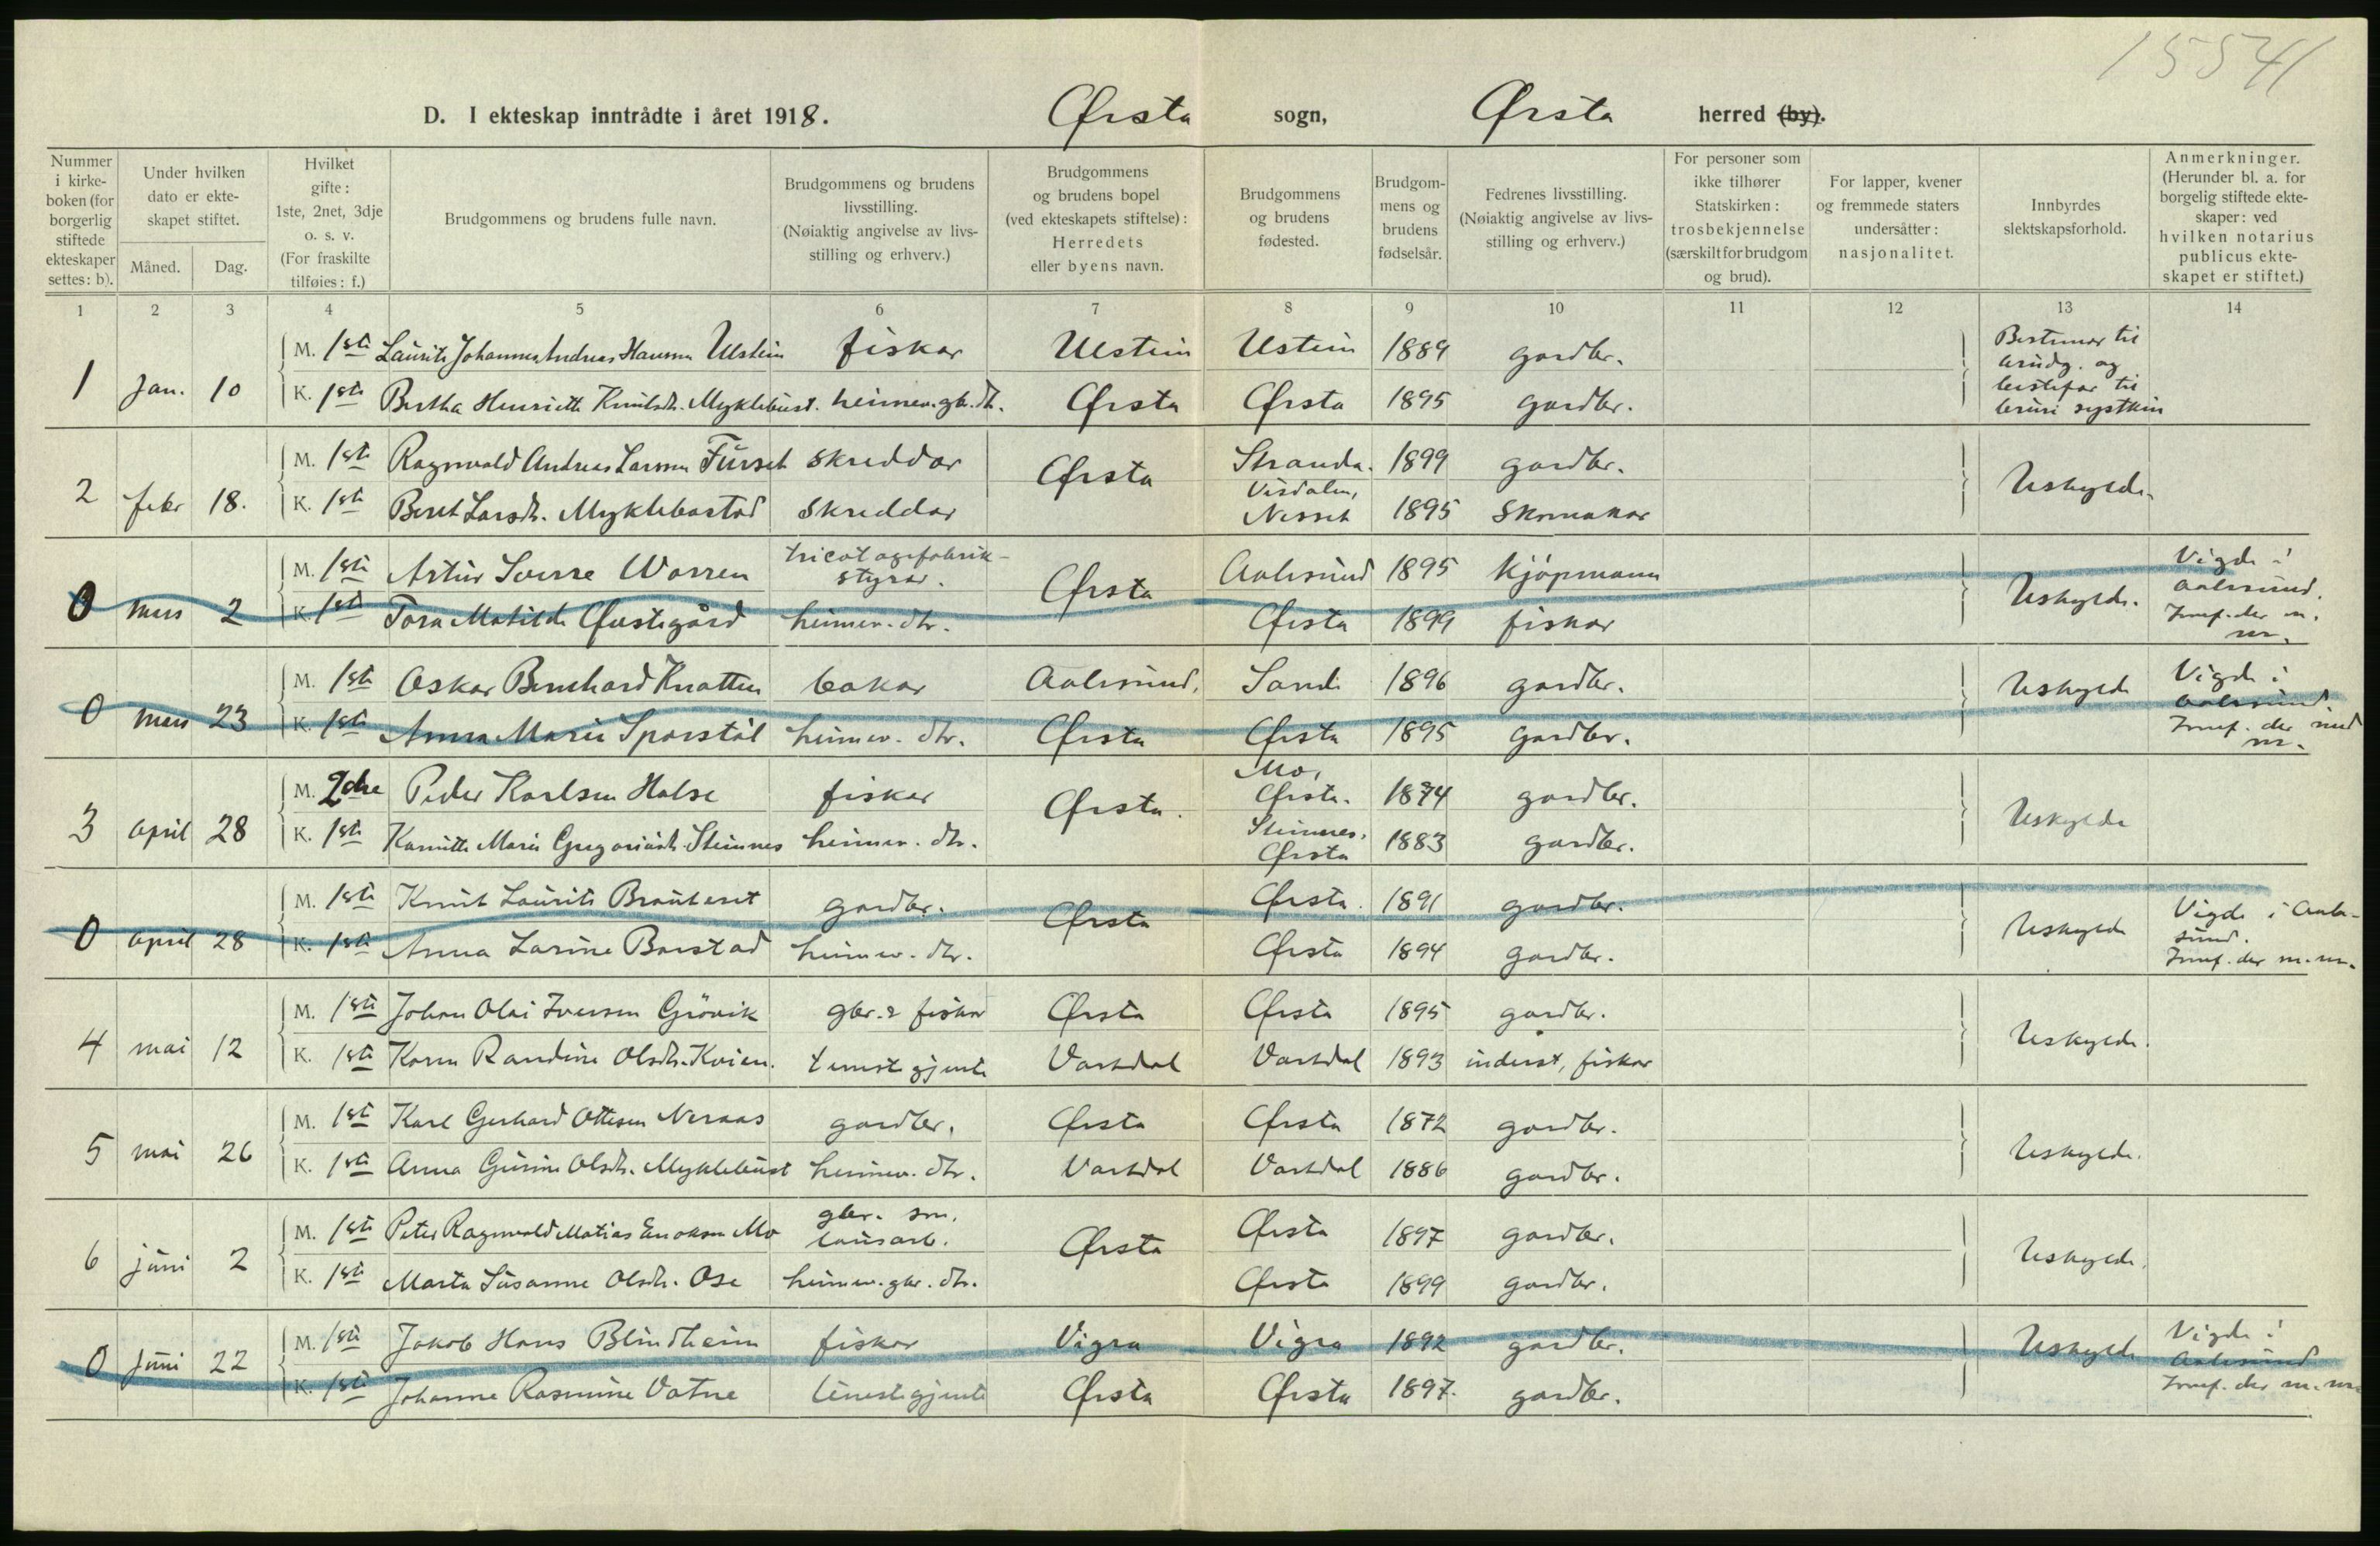 15541
D. I ekteskap inntrådte i året 1918. Ørsta sogn, Ørsta herred (by).
Nummer i kirke-boken (for borgerlig stiftede ekteskaper settes: b).
Under hvilken dato er ekte-skapet stiftet.
Måned. Dag.
Hvilket gifte: 1ste, 2net, 3dje o. s. v. (For fraskilte tilføies: f.)
Brudgommens og brudens fulle navn.
Brudgommens og brudens livsstilling. (Nøiaktig angivelse av livs-stilling og erhverv.)
Brudgommens og brudens bopel (ved ekteskapets stiftelse): Herredets eller byens navn.
Brudgommens og brudens fødested.
Brudgom-mens og brudens fødselsår.
Fedrenes livsstilling. (Nøiaktig angivelse av livs-stilling og erhverv.)
For personer som ikke tilhører Statskirken: trosbekjennelse (særskilt for brudgom og brud).
For lapper, kvener og fremmede staters undersåtter: nasjonalitet.
Innbyrdes slektskapsforhold.
Anmerkninger. (Herunder bl. a. for borgelig stiftede ekte-skaper: ved hvilken notarius publicus ekte-skapet er stiftet.)
1 2 3 4 5 6 7 8 9 10 11 12 13 14
1 Jan. 10 M. 1ste Laurits Johannes Andreas Hansen Ulstein fiskar Ulstein Ulstein 1889 gardbr. Bestemor til brudg. og bestefar til bruri systkin
K. 1ste Bertha Henriette Knutsdtr. Myklebust. heimev. gbr. dtr. Ørsta Ørsta 1895 gardbr.
2 febr 18. M. 1ste Ragnvald Andreas Larsen Furset skreddar Ørsta Stranda. 1899 gardbr. Uskylde.
K. 1ste Beret Larsdtr. Myklebostad skreddar Visdalen, Nesset 1895 skomakar
0 mars 2 M. 1ste Artur Sverre Warren tricotagefabrik-styrar. Ørsta Aalesund 1895 kjøpmann Uskylde. Vigde i Aalesund. Innf. der m. nr.
K. 1ste Tora Matilde Øvstegård heimev. dtr. Ørsta 1899 fiskar
0 mars 23 M. 1ste Oskar Bernhard Knatten bakar Aalesund, Sande 1896 gardbr. Uskylde Vigde i Aalesund. Innf. der med nr.
K. 1ste Anna Marie Sporstøl heimev. dtr. Ørsta Ørsta 1895 gardbr.
3 april 28 M. 2dre Peder Karlsen Halse fiskar Ørsta. Mo, Ørsta. 1874 gardbr. Uskylde
K. 1ste Kamitte Marie Gregoriusdtr. Steinnes heimev. dtr. Steinnes, Ørsta 1883 gardbr.
0 april 28 M. 1ste Knut Laurits Brauteset gardbr. Ørsta Ørsta. 1891 gardbr. Uskylde Vigde i Aale-sund. Innf. der m. nr.
K. 1ste Anna Larine Barstad heimev. dtr. Ørsta 1894 gardbr.
4 mai 12 M. 1ste Johan Olai Iversen Grøvik gbr. & fiskar Ørsta Ørsta 1895 gardbr. Uskylde.
K. 1ste Karen Randine Olsdtr. Kvien. tenestegjente Vartdal Vartdal 1893 inderst, fiskar
5 mai 26 M. 1ste Karl Gerhard Ottesen Neraas gardbr. Ørsta Ørsta 1872 gardbr. Uskylde.
K. 1ste Anna Gurine Olsdtr. Myklebust heimev. dtr. Vartdal Vartdal 1886 gardbr.
6 juni 2 M. 1ste Peter Ragnvald Matias Enoksen Mo gbr. son, lausarb. Ørsta Ørsta 1897 gardbr. Uskylde.
K. 1ste Marta Susanne Olsdtr. Ose heimev. gbr. dtr. Ørsta 1899 gardbr.
0 juni 22 M. 1ste Jakob Hans Blindheim fiskar Vigra Vigra 1892 gardbr. Uskylde Vigde i Aalesund Innf. der m. nr.
K. 1ste Johanne Rasmine Vatne tenestegjente Ørsta Ørsta 1897. gardbr.